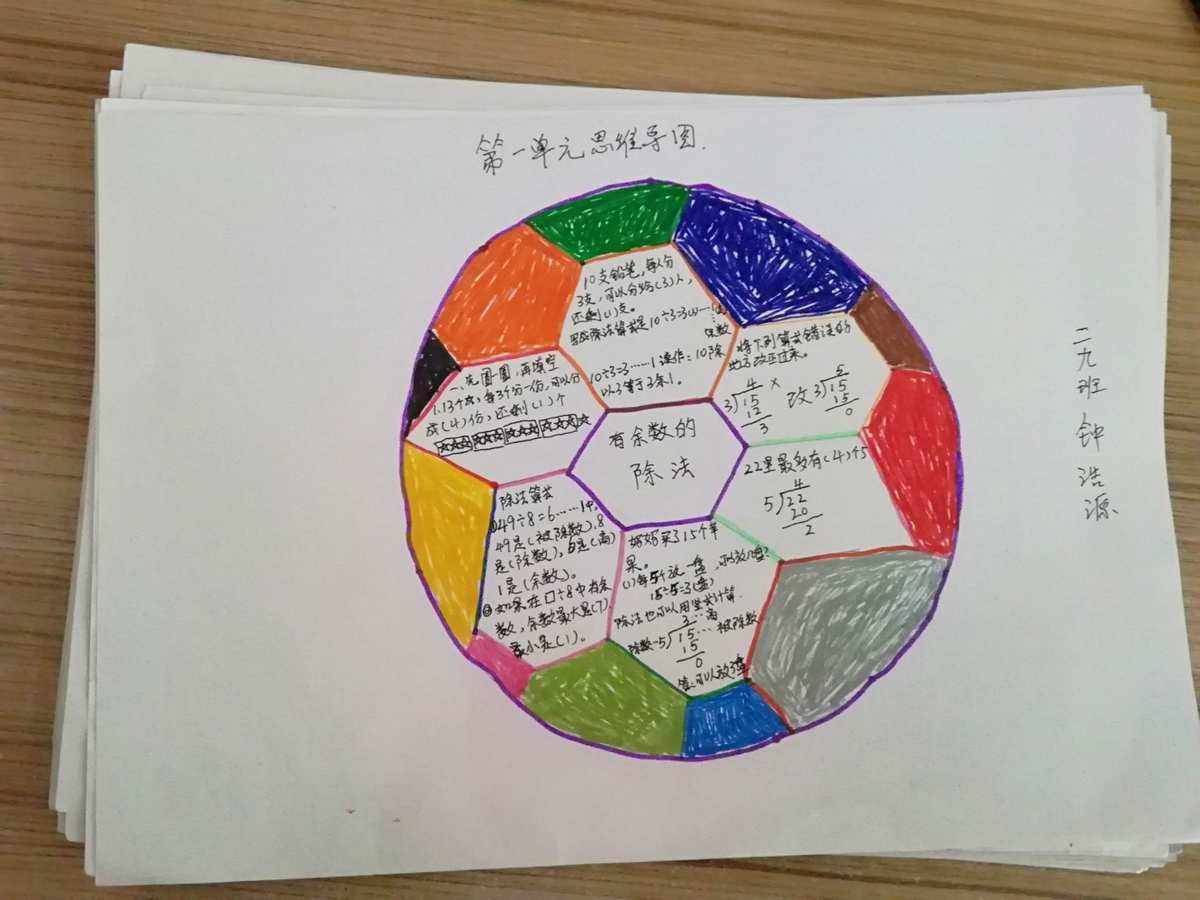 第一单元思维导图.
10支铅笔,每人分
3支,可以分给(3)人,
还剩(1)支。
写成除法算式是10÷3=3(人)……1(支)
余数
10÷3=3……1读作:10除
以3等于3余1。
将下列算式错误的
地方改正过来。
4
3)15 ×
12
3
改
5
3)15
15
0
一、先圈一圈,再填空
1.13个☆,每3个分一份,可以分
成(4)份,还剩(1)个
☆☆☆ ☆☆☆ ☆☆☆ ☆☆☆ ☆
有余数的
除法
22里最多有(4)个5
4
5)22
20
2
除法算式
①49÷8=6……1中,
49是(被除数),8
是(除数),6是(商)
1是(余数)。
②如果在口÷8中有余
数,余数最大是(7),
最小是(1)。
妈妈买了15个苹
果。
(1)每5个放一盘,可以放几盘?
15÷5=3(盘)
除法也可以用竖式计算.
3…商
除数…5)15…被除数
15
0
答:可以放3盘
二九班 钟浩源